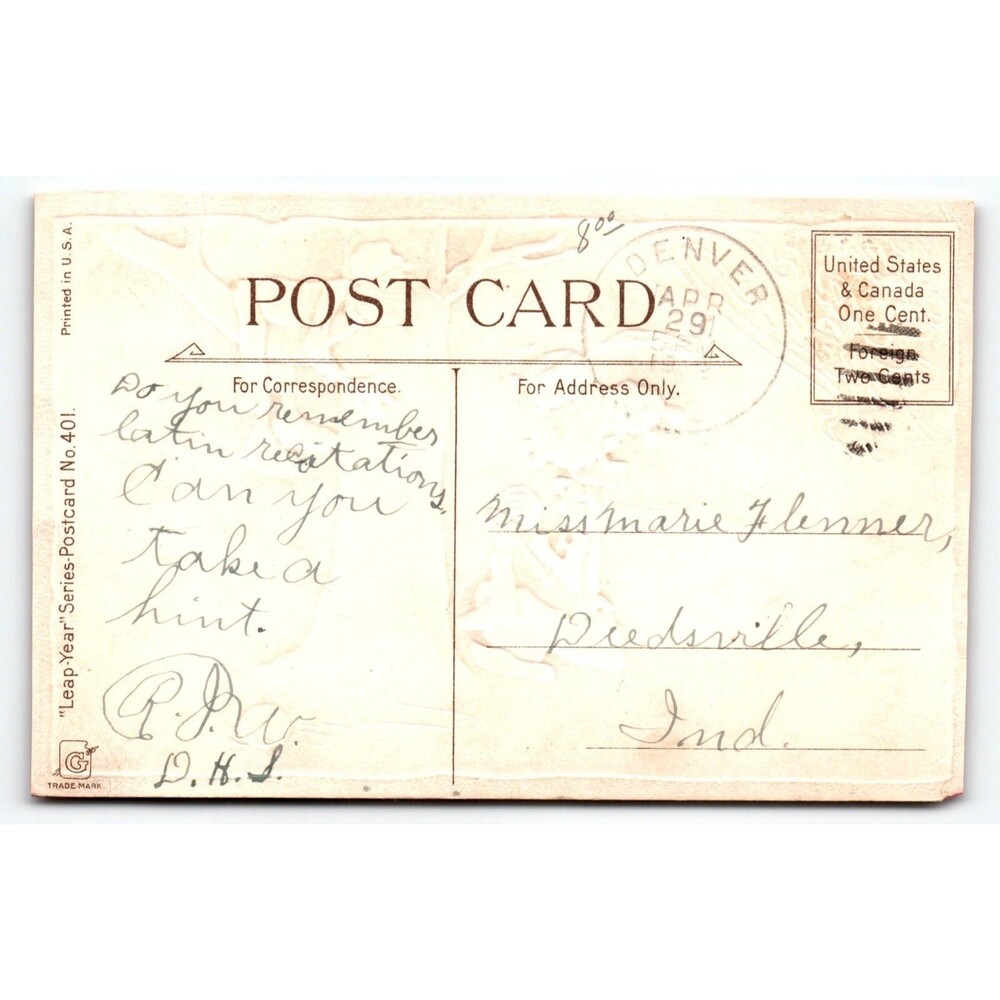 8⁰⁰
DENVER
APR
29
POST CARD
United States
& Canada
One Cent.
Foreign
Two Cents
For Correspondence.
For Address Only.
Do you remember
latin recitations.
Can you
take a
hint.
D.H.S.
Miss Marie Flenner,
Deedsville,
Ind.
Printed in U.S.A.
"Leap-Year" Series-Postcard No. 401.
G
TRADE MARK